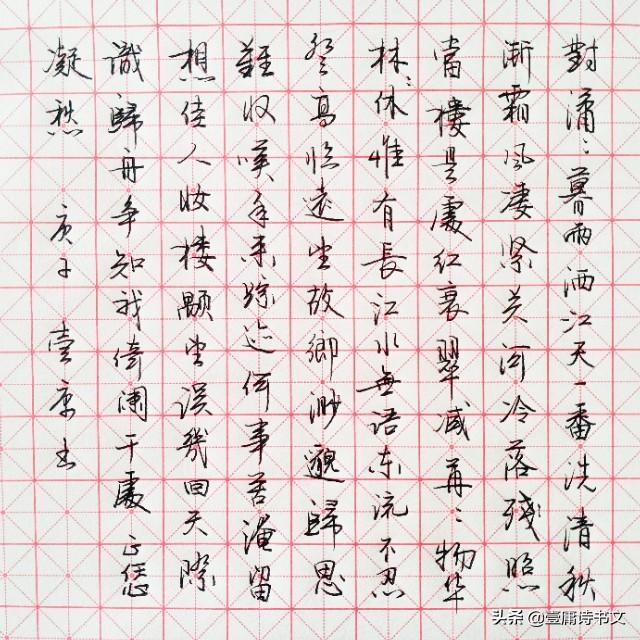 對瀟瀟暮雨洒江天一番洗清秋
漸霜風凄緊关河冷落殘照
當樓是處紅衰翠减苒苒物华
林休惟有長江水無语东流不忍
登高臨遠望故鄉渺邈歸思
難收嘆年来踪迹何事苦淹留
想佳人妝楼顒望误幾回天際
識歸舟争知我倚阑干處正恁
凝愁 庚子 壹庸书
头条 @壹庸诗书文